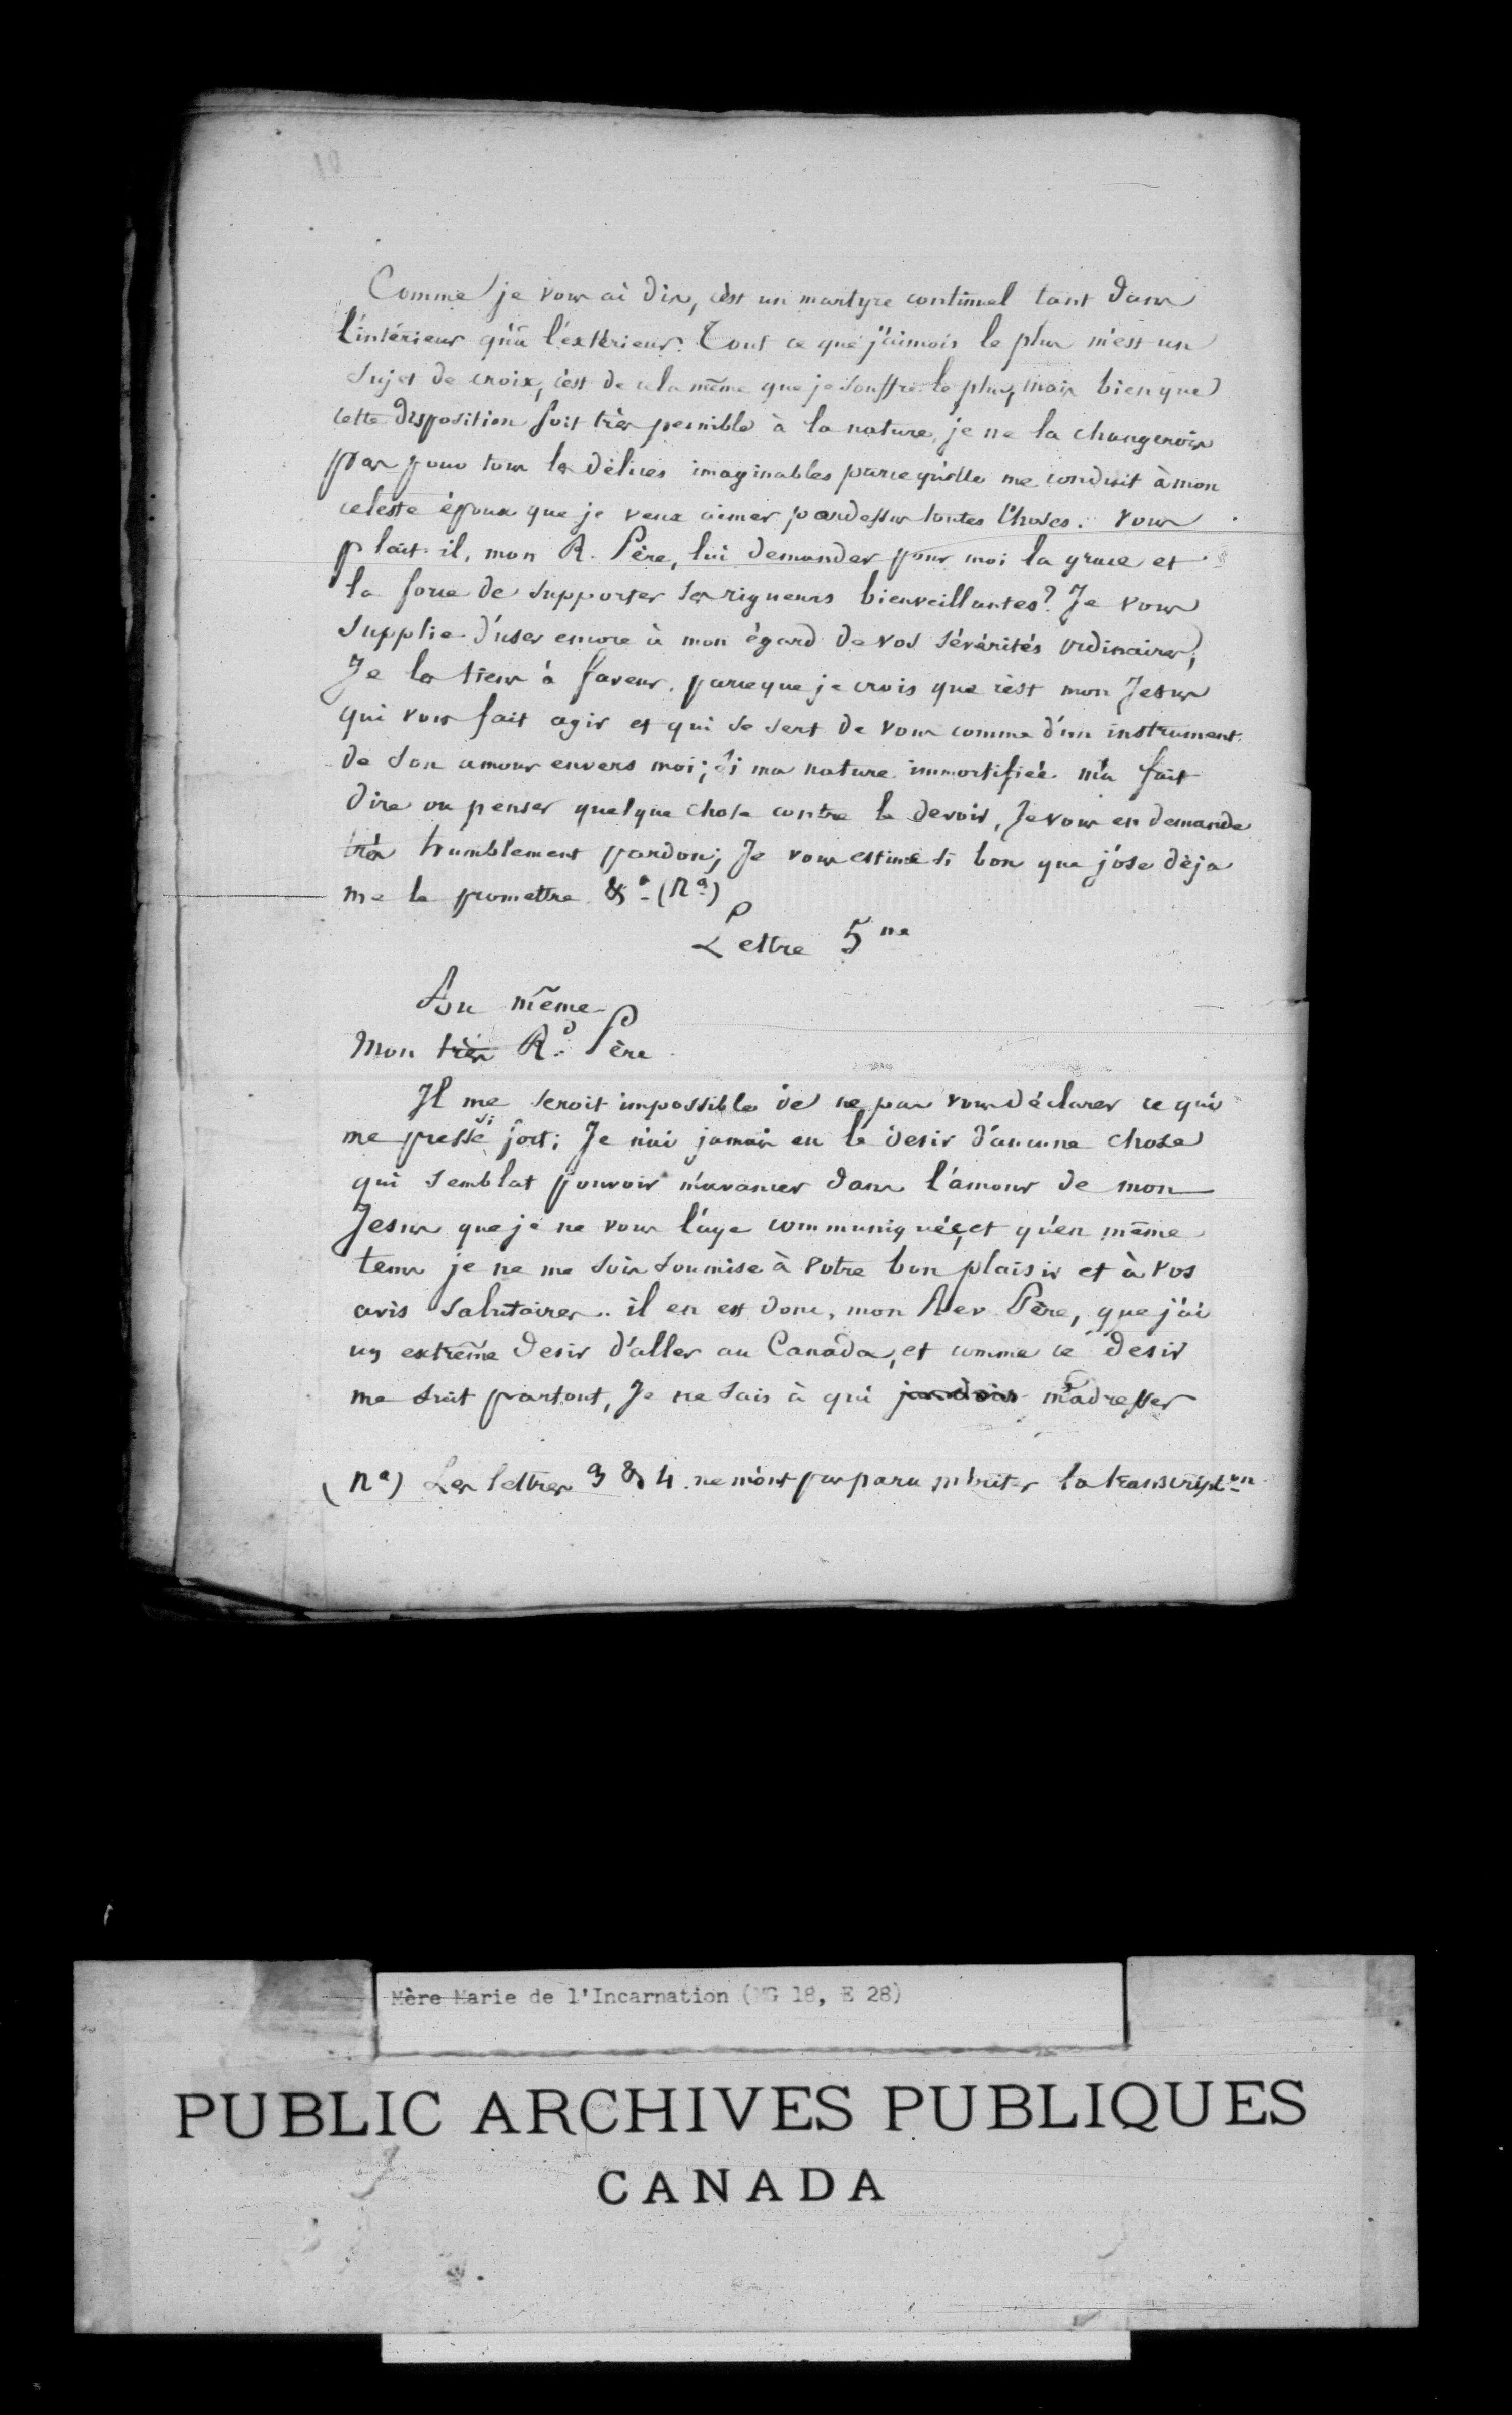 10
Comme je vous ai dis, c'est un martyre continuel tant dans
l'intérieur qu'à l'extérieur. Tout ce que j'aimois le plus m'est un
sujet de croix, c'est de cela même que je souffre le plus, mais bien que
cette disposition soit très pesnible à la nature, je ne la changerois
pas pour tous les délices imaginables parcequ'elle me conduit à mon
celeste époux que je veux aimer pardessus toutes choses. Vous
plait-il, mon R. Père, lui demander pour moi la grace et
la force de supporter ses rigueurs bienveillantes? Je vous
supplie d'user encore à mon égard de vos sévérités ordinaires;
Je les tiens à faveur, parceque je crois que c'est mon Jesus
qui vous fait agir et qui se sert de vous comme d'un instrument
de son amour envers moi; Si ma nature immortifiée m'a fait
dire ou penser quelque chose contre le devoir, Je vous en demande
très humblement pardon; Je vous estime si bon que j'ose dèja
me le promettre. &a (Na)
Lettre 5me
Au même
Mon très Rd Père
Il me seroit impossible de ne pas vous déclarer ce qui
me presse si fort; Je n'ai jamais eu le desir d'aucune chose
qui semblat pouvoir m'avancer dans l'amour de mon
Jesus que je ne vous l'aye communiquée, et qu'en même
tems je ne me sois soumise à votre bon plaisir et à vos
avis salutaires.. il en est donc, mon Rev Père, que j'ai
un extrême desir d'aller au Canada, et comme ce desir
me suit partout, Je ne sais à qui je dois m'adresser
(Na) Les lettres 3 & 4 ne m'ont pas paru mériter la transcripton
Mère Marie de l'Incarnation (MG 18, E 28)
PUBLIC ARCHIVES PUBLIQUES
CANADA